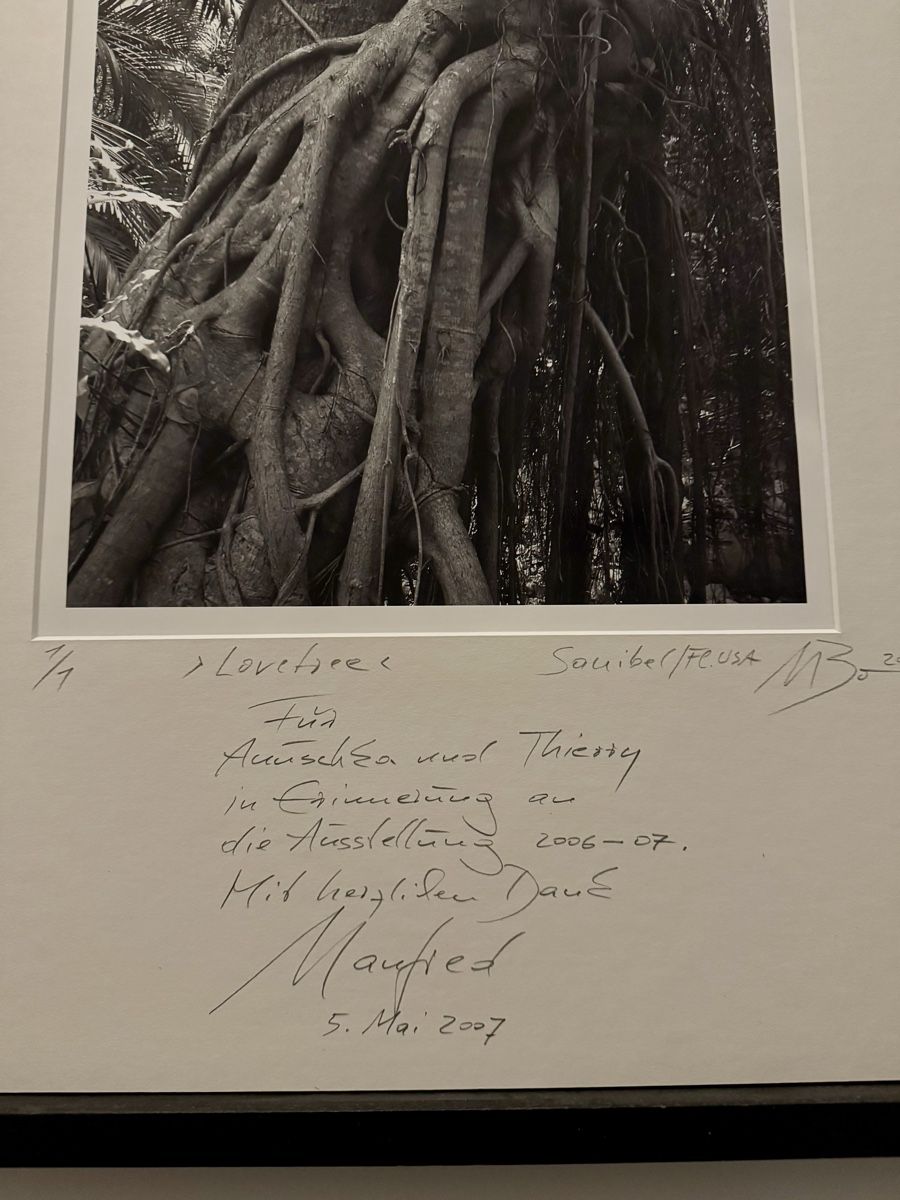 1/1 ›Lovetree‹ Sanibel/Fl.USA
Für
Anuschka und Thierry
in Erinnerung an
die Ausstellung 2006–07.
Mit herzlichen Dank
Manfred
5. Mai 2007